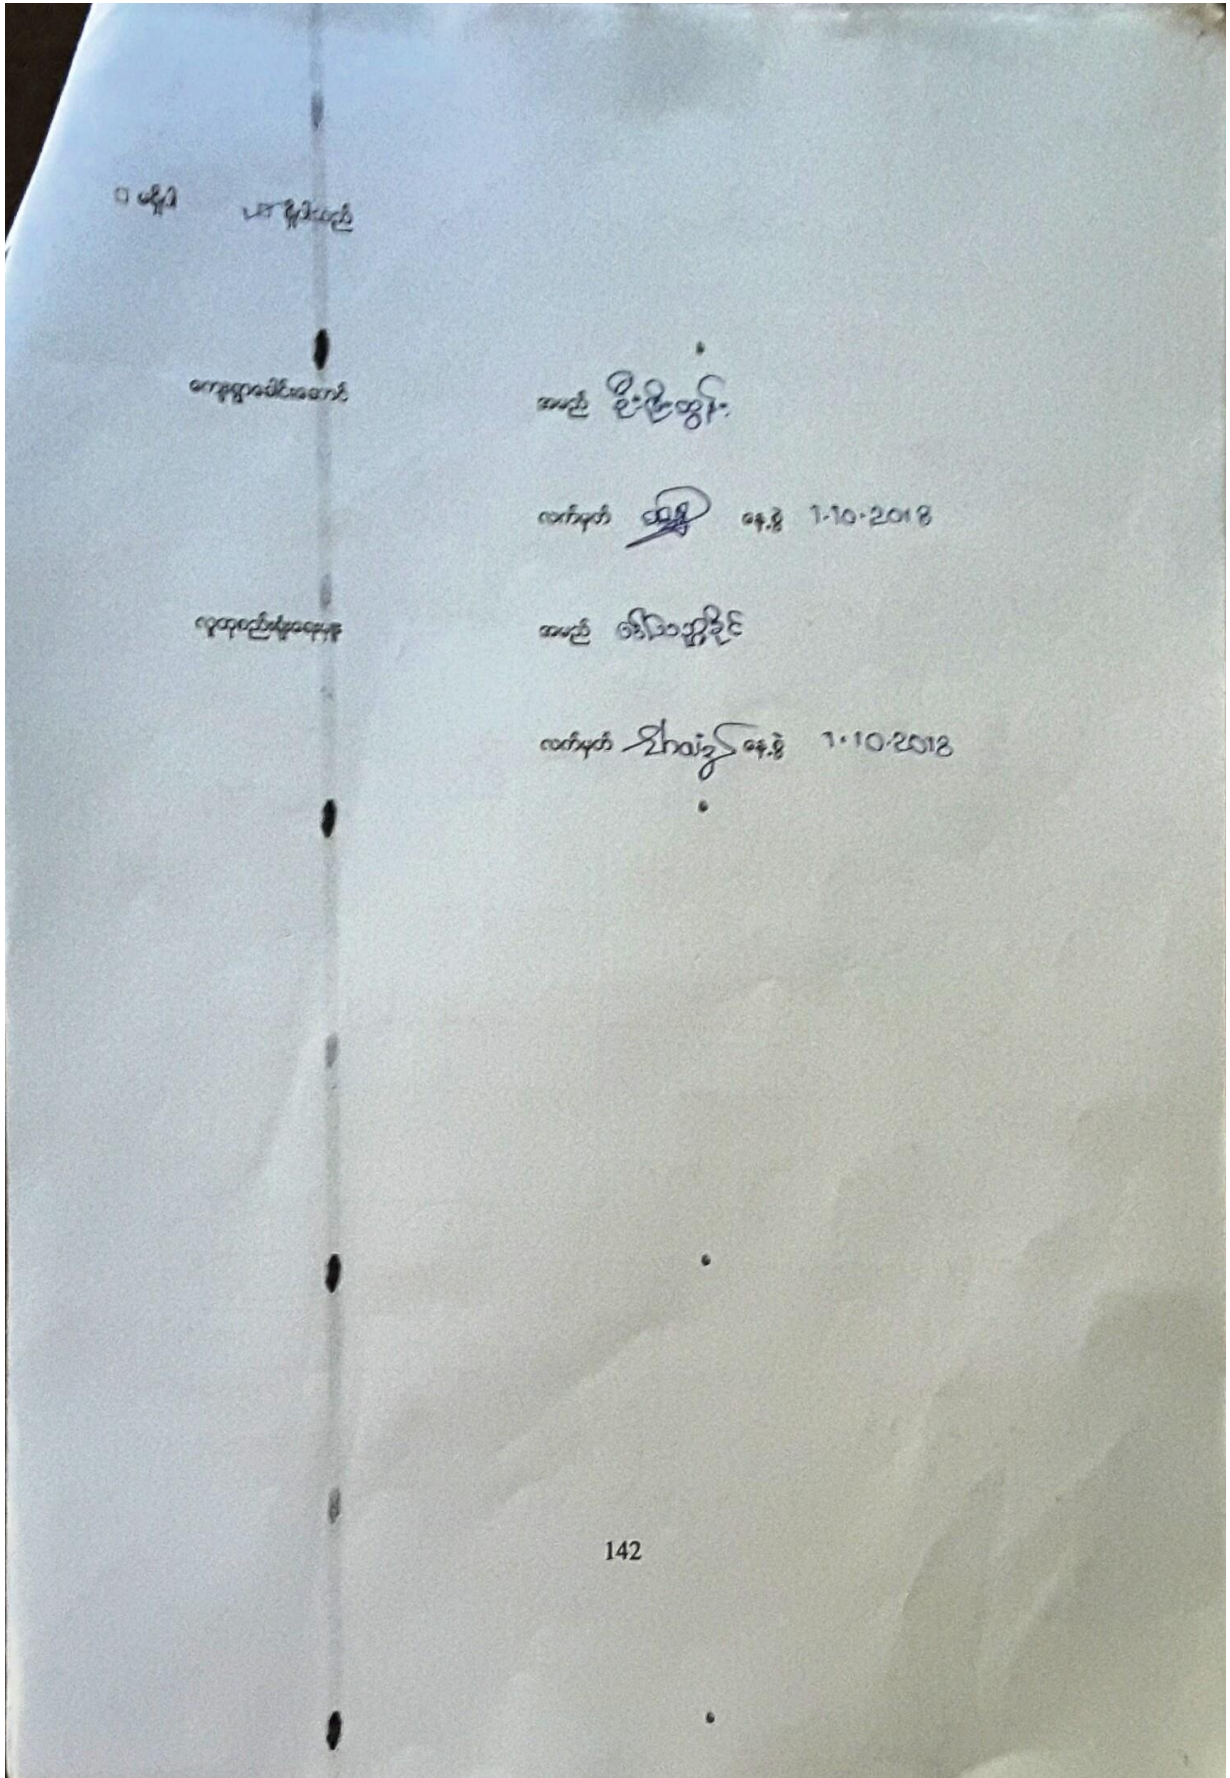 □ မရှိပါ ☑ ရှိပါသည်
ကျေးရွာခေါင်းဆောင် အမည် ဦးစိုးထွန်း
လက်မှတ် နေ့စွဲ 1.10.2018
လူထုစည်းရုံးရေးမှူး အမည်
လက်မှတ် နေ့စွဲ 1.10.2018
142